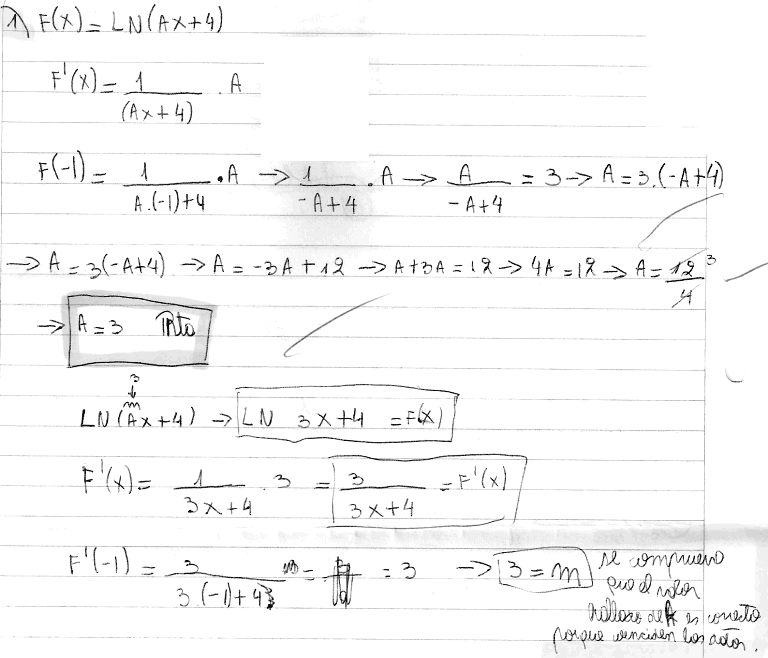 1) F(X) = LN(AX+4)
F'(X) = 1/(AX+4) . A
F(-1) = 1/(A.(-1)+4) . A → 1/(-A+4) . A → A/(-A+4) = 3 → A = 3.(-A+4)
→ A = 3(-A+4) → A = -3A + 12 → A+3A = 12 → 4A = 12 → A = 12/4 3
→ A = 3 Rta
3
↓
LN(AX+4) → LN 3X+4 = F(X)
F'(X) = 1/(3X+4) . 3 = 3/(3X+4) = F'(X)
F'(-1) = 3/(3.(-1)+4) = = 3 → 3 = m se comprueva
que el valor
hallado de A es correcto
porque coinciden los datos.